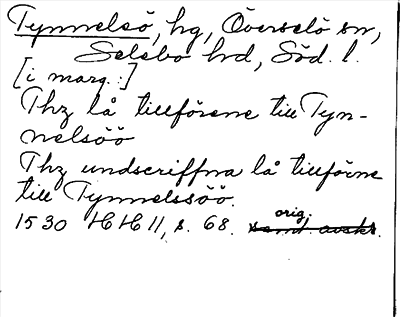 Tynnelsö, hg, Överselö sn,
Selebo hd, Söd. l.
[i marg.:]
Thz lå tillförene till Tyn-
nelsöö
Thz undscriffna lå tillförne
till Tynnelssöö.
1530 HH 11, s. 68. orig. samt. avskr.